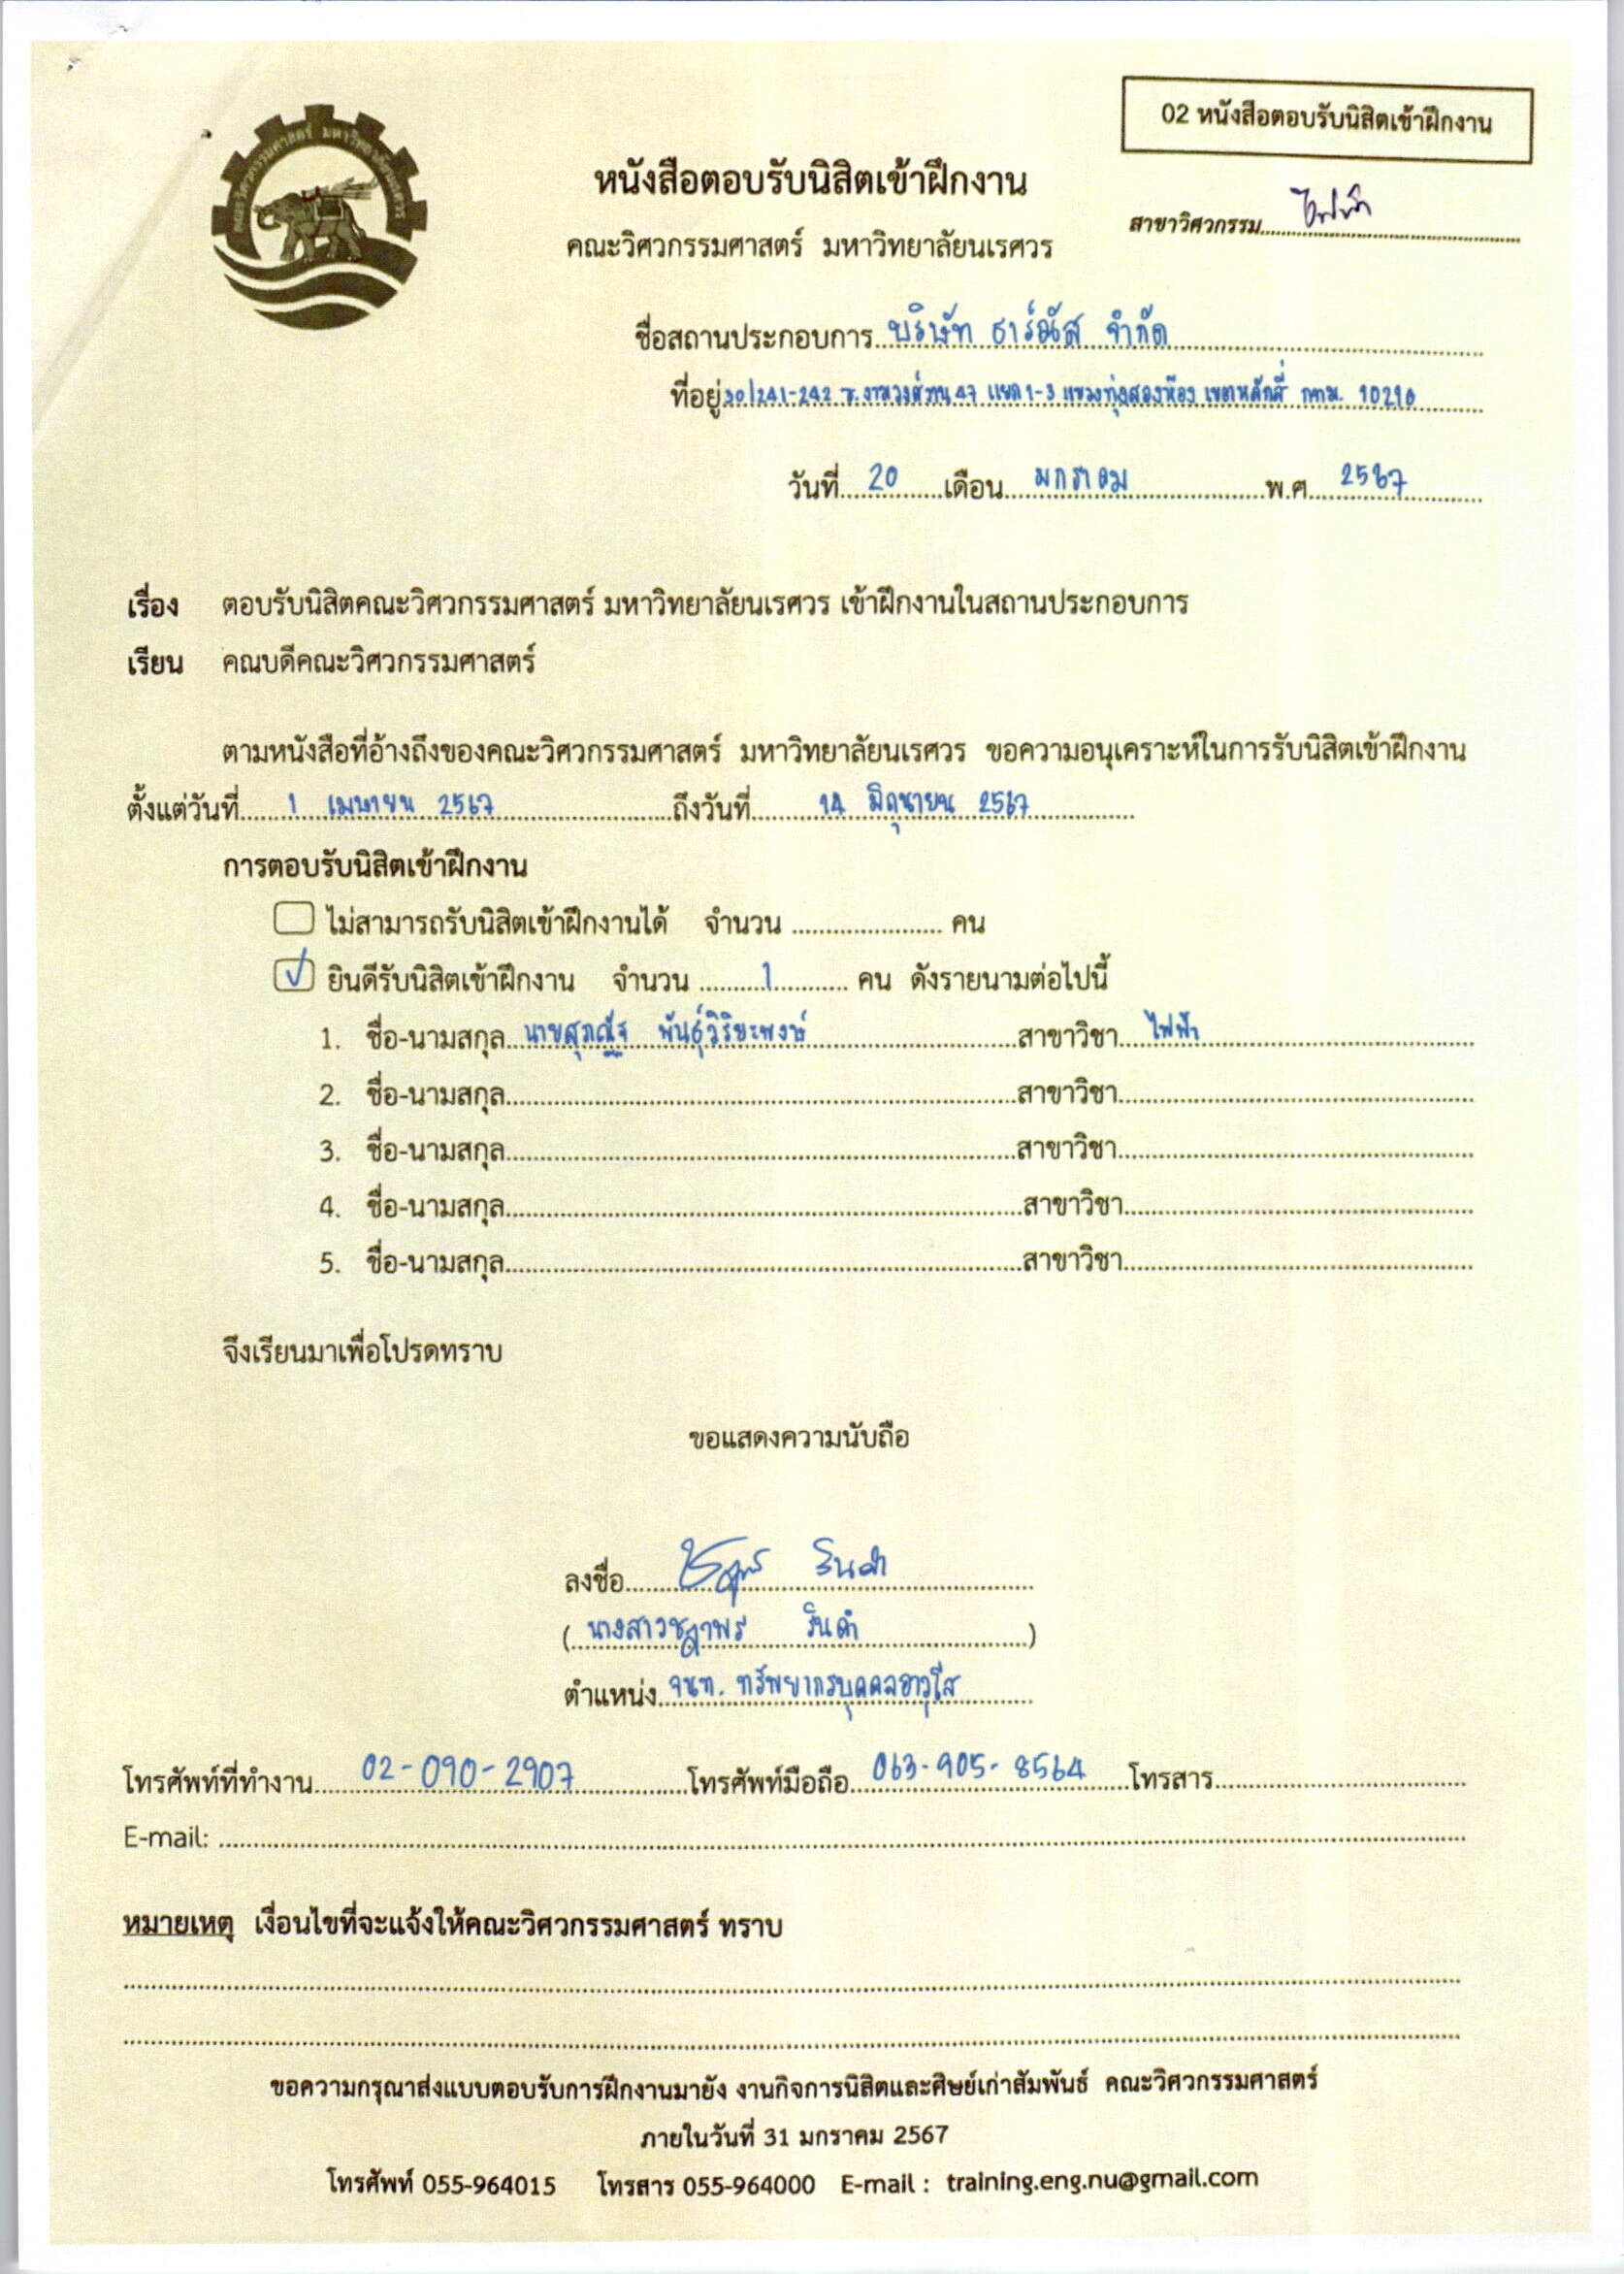 02 หนังสือตอบรับนิสิตเข้าฝึกงาน
หนังสือตอบรับนิสิตเข้าฝึกงาน
สาขาวิศวกรรม ไฟฟ้า
คณะวิศวกรรมศาสตร์ มหาวิทยาลัยนเรศวร
ชื่อสถานประกอบการ บริษัท ธาร์มัส จำกัด
ที่อยู่ 30/241-242 ซ.งามวงศ์วาน 47 แยก 1-3 แขวงทุ่งสองห้อง เขตหลักสี่ กทม. 10210
วันที่ 20 เดือน มกราคม พ.ศ. 2567
เรื่อง ตอบรับนิสิตคณะวิศวกรรมศาสตร์ มหาวิทยาลัยนเรศวร เข้าฝึกงานในสถานประกอบการ
เรียน คณบดีคณะวิศวกรรมศาสตร์
ตามหนังสือที่อ้างถึงของคณะวิศวกรรมศาสตร์ มหาวิทยาลัยนเรศวร ขอความอนุเคราะห์ในการรับนิสิตเข้าฝึกงาน
ตั้งแต่วันที่ 1 เมษายน 2567 ถึงวันที่ 14 มิถุนายน 2567
การตอบรับนิสิตเข้าฝึกงาน
ไม่สามารถรับนิสิตเข้าฝึกงานได้ จำนวน ...................... คน
✓ ยินดีรับนิสิตเข้าฝึกงาน จำนวน 1 คน ดังรายนามต่อไปนี้
1. ชื่อ-นามสกุล นายศุภณัฐ พันธุ์วิริยะพงษ์ สาขาวิชา ไฟฟ้า
2. ชื่อ-นามสกุล สาขาวิชา
3. ชื่อ-นามสกุล สาขาวิชา
4. ชื่อ-นามสกุล สาขาวิชา
5. ชื่อ-นามสกุล สาขาวิชา
จึงเรียนมาเพื่อโปรดทราบ
ขอแสดงความนับถือ
ลงชื่อ
(นางสาวชฎาพร รินคำ)
ตำแหน่ง จนท. ทรัพยากรบุคคลอาวุโส
โทรศัพท์ที่ทำงาน 02-090-2907 โทรศัพท์มือถือ 063-905-8564 โทรสาร
E-mail:
หมายเหตุ เงื่อนไขที่จะแจ้งให้คณะวิศวกรรมศาสตร์ ทราบ
ขอความกรุณาส่งแบบตอบรับการฝึกงานมายัง งานกิจการนิสิตและศิษย์เก่าสัมพันธ์ คณะวิศวกรรมศาสตร์
ภายในวันที่ 31 มกราคม 2567
โทรศัพท์ 055-964015 โทรสาร 055-964000 E-mail : training.eng.nu@gmail.com